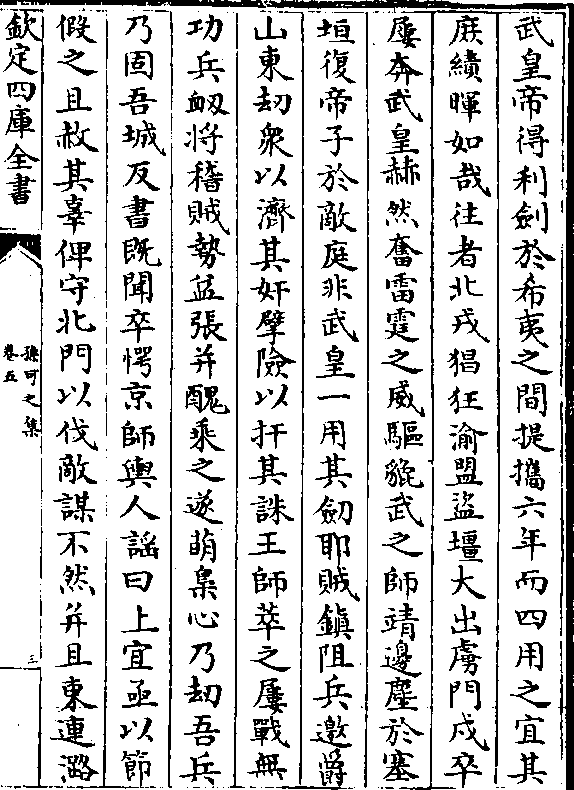 武皇帝得利劍於希夷之間提攜六年而四用之宜其
庶績暉如哉往者北戎猖狂渝盟盜壇大出虜門戍卒
屢奔武皇赫然奮雷霆之威驅貔武之師靖邊塵於塞
垣復帝子於敵庭非武皇一用其劒耶賊鎮阻兵邀爵
山東刧衆以濟其奸擘險以扞其誅王師萃之屢戰無
功兵衂將稽賊勢益張并醜乘之遂萌梟心乃刧吾兵
乃固吾城反書既聞卒愕京師輿人謡曰上宜亟以節
假之且赦其辜俾守北門以伐敵謀不然并且東連潞
欽定四庫全書
孫可之集
卷五
三